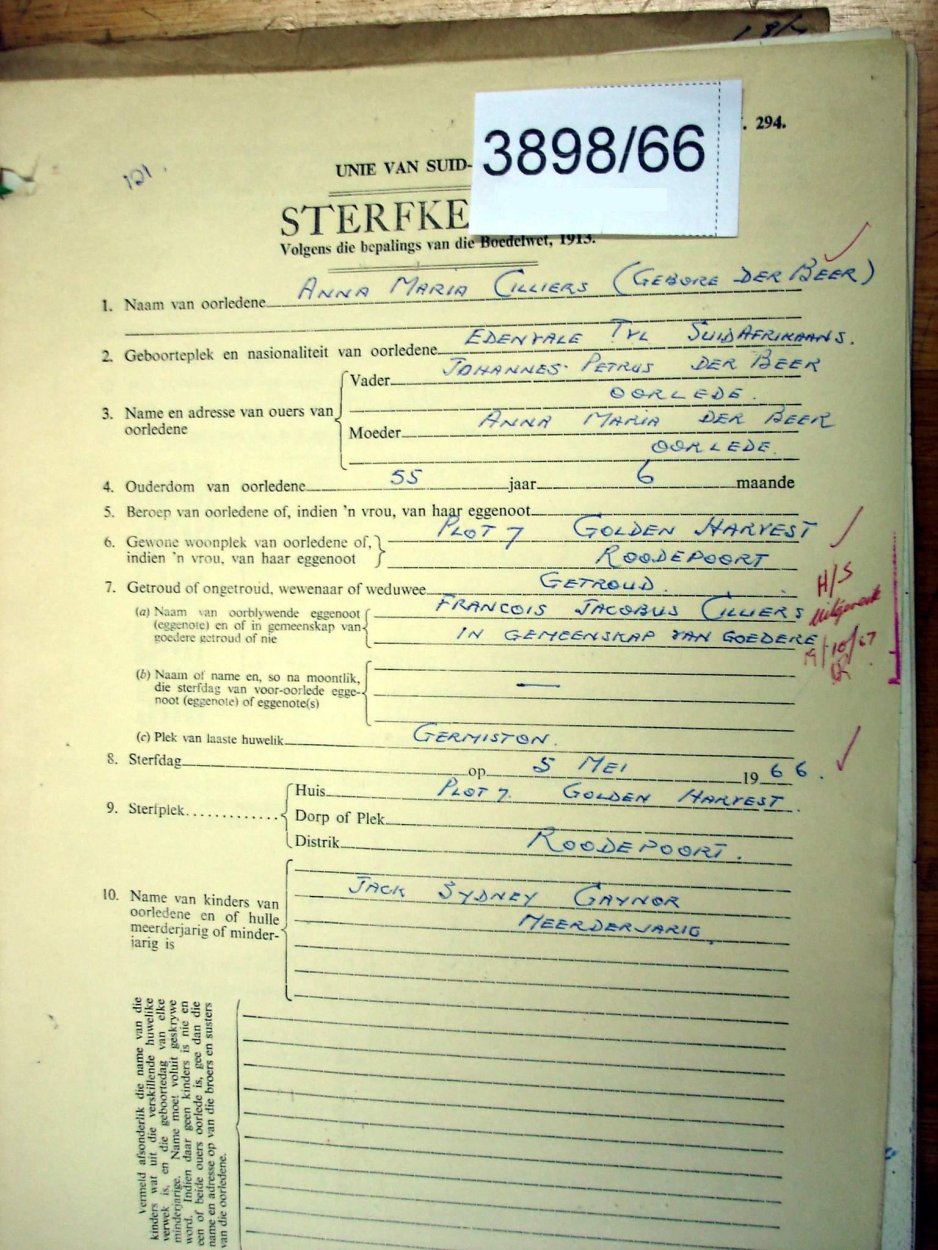 . 294.
3898/66
121
UNIE VAN SUID-
STERFKE
Volgens die bepalings van die Boedelwet, 1913.
1. Naam van oorledene ANNA MARIA CILLIERS (GEBORE DER BEER)
2. Geboorteplek en nasionaliteit van oorledene EDENVALE TVL SUIDAFRIKAANS.
3. Name en adresse van ouers van oorledene
Vader JOHANNES PETRUS DER BEER
OORLEDE.
Moeder ANNA MARIA DER BEER
OORLEDE.
4. Ouderdom van oorledene 55 jaar 6 maande
5. Beroep van oorledene of, indien 'n vrou, van haar eggenoot
6. Gewone woonplek van oorledene of, PLOT 7 GOLDEN HARVEST
indien 'n vrou, van haar eggenoot ROODEPOORT
7. Getroud of ongetroud, wewenaar of weduwee GETROUD.
(a) Naam van oorblywende eggenoot FRANCOIS JACOBUS CILLIERS
(eggenote) en of in gemeenskap van
goedere getroud of nie IN GEMEENSKAP VAN GOEDERE
H/S
Uitgewerk
19/10/67
(b) Naam of name en, so na moontlik,
die sterfdag van voor-oorlede egge-
noot (eggenote) of eggenote(s) —
(c) Plek van laaste huwelik GERMISTON.
8. Sterfdag op 5 MEI 1966.
9. Sterfplek
Huis PLOT 7 GOLDEN HARVEST.
Dorp of Plek
Distrik ROODEPOORT.
10. Name van kinders van
oorledene en of hulle
meerderjarig of minder-
jarig is
JACK SYDNEY GAYNOR
MEERDERJARIG.
Vermeld afsonderlik die name van die
kinders wat uit die verskillende huwelike
verwek is, en die geboortedag van elke
minderjarige. Name moet voluit geskrywe
word. Indien daar geen kinders is nie en
een of beide ouers oorlede is, gee dan die
name en adresse op van die broers en susters
van die oorledene.